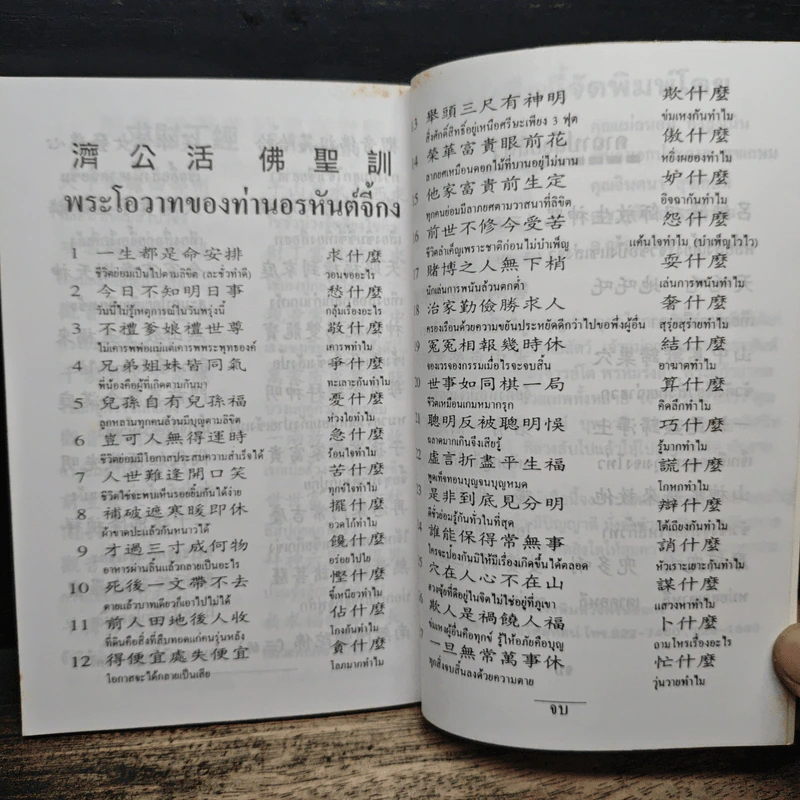 濟公活 佛聖訓
พระโอวาทของท่านอรหันต์จี้กง
1 一生都是命安排 求什麼
ชีวิตย่อมเป็นไปตามลิขิต (ละชั่วทำดี) วอนขออะไร
2 今日不知明日事 愁什麼
วันนี้ไม่รู้เหตุการณ์ในวันพรุ่งนี้ กลุ้มเรื่องอะไร
3 不禮爹娘禮世尊 敬什麼
ไม่เคารพพ่อแม่แต่เคารพพระพุทธองค์ เคารพทำไม
4 兄弟姐妹皆同氣 爭什麼
พี่น้องคือผู้ที่เกิดตามกันมา ทะเลาะกันทำไม
5 兒孫自有兒孫福 憂什麼
ลูกหลานทุกคนล้วนมีบุญตามลิขิต ห่วงใยทำไม
6 豈可人無得運時 急什麼
ชีวิตย่อมมีโอกาสประสบความสำเร็จได้ ร้อนใจทำไม
7 人世難逢開口笑 苦什麼
ชีวิตใช่จะพบเห็นรอยยิ้มกันได้ง่าย ทุกข์ใจทำไม
8 補破遮寒暖即休 擺什麼
ผ้าขาดปะแล้วกันหนาวได้ อวดโก้ทำไม
9 才過三寸成何物 饞什麼
อาหารผ่านลิ้นแล้วกลายเป็นอะไร อร่อยไปใย
10 死後一文帶不去 慳什麼
ตายแล้วบาทเดียวก็เอาไปไม่ได้ ขี้เหนียวทำไม
11 前人田地後人收 佔什麼
ที่ดินคือสิ่งที่สืบทอดแก่คนรุ่นหลัง โกงกันทำไม
12 得便宜處失便宜 貪什麼
โอกาสจะได้กลายเป็นเสีย โลภมากทำไม
13 舉頭三尺有神明 欺什麼
สิ่งศักดิ์สิทธิ์อยู่เหนือศรีษะเพียง 3 ฟุต ข่มเหงกันทำไม
14 榮華富貴眼前花 傲什麼
ลาภยศเหมือนดอกไม้ที่บานอยู่ไม่นาน หยิ่งผยองทำไม
15 他家富貴前生定 妒什麼
ทุกคนย่อมมีลาภยศตามวาสนาที่ลิขิต อิจฉากันทำไม
16 前世不修今受苦 怨什麼
ชีวิตลำเค็ญเพราะชาติก่อนไม่บำเพ็ญ แค้นใจทำไม (บำเพ็ญไวไว)
17 賭博之人無下梢 耍什麼
นักเล่นการพนันล้วนตกต่ำ เล่นการพนันทำไม
18 治家勤儉勝求人 奢什麼
ครองเรือนด้วยความขยันประหยัดดีกว่าไปขอพึ่งผู้อื่น สุรุ่ยสุร่ายทำไม
19 冤冤相報幾時休 結什麼
จองเวรจองกรรมเมื่อไรจะจบสิ้น อาฆาตทำไม
20 世事如同棋一局 算什麼
ชีวิตเหมือนเกมหมากรุก คิดลึกทำไม
21 聰明反被聰明悞 巧什麼
ฉลาดมากเกินจึงเสียรู้ รู้มากทำไม
22 虛言折盡平生福 謊什麼
พูดเท็จทอนบุญจนบุญหมด โกหกทำไม
23 是非到底見分明 辯什麼
ดีชั่วย่อมรู้กันทั่วในที่สุด โต้เถียงกันทำไม
24 誰能保得常無事 誚什麼
ใครจะป้องกันมิให้มีเรื่องเกิดขึ้นได้ตลอด หัวเราะเยาะกันทำไม
25 穴在人心不在山 謀什麼
ฮวงจุ้ยที่ดีอยู่ในจิตไม่ใช่อยู่ที่ภูเขา แสวงหาทำไม
欺人是禍饒人福 卜什麼
ข่มเหงผู้อื่นคือทุกข์ รู้ให้อภัยคือบุญ ถามโหรเรื่องอะไร
一旦無常萬事休 忙什麼
ทุกสิ่งจบสิ้นลงด้วยความตาย วุ่นวายทำไม
จบ